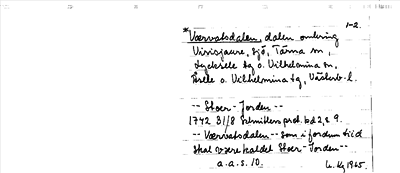 1-2.
*Værvatsdalen, dalen omkring
Virisjaure, sjö, Tärna sn,
Lycksele tg o. Vilhelmina sn,
Åsele o. Vilhelmina tg, Västerb. l.
-- Stoer-Jorden --
1742 31/8 Schnitlers prot. bd 2, s 9.
-- Værvatsdalen -- som i fordum tiid
skal være kaldet Stoer-Jorden --
a.a.s. 10. 1965.